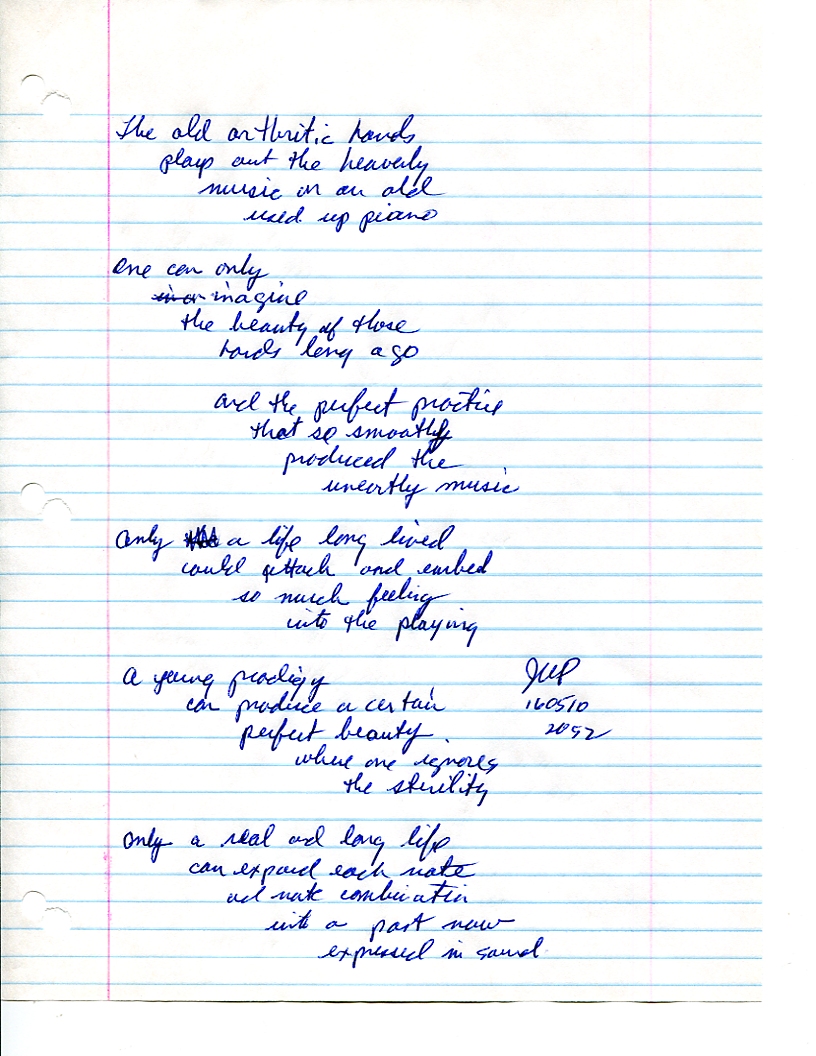 The old arthritic hands
plays out the heavenly
music on an old
used up piano
One can only
imagine
the beauty of those
hands long ago
and the perfect practice
that so smoothly
produced the
uneartly music
Only a life long lived
could attach and embed
so much feeling
into the playing
A young prodigy
can produce a certain
perfect beauty.
where one ignores
the sterility
JWP
160510
2052
Only a real and long life
can expand each note
and note combination
with a past now
expressed in sound